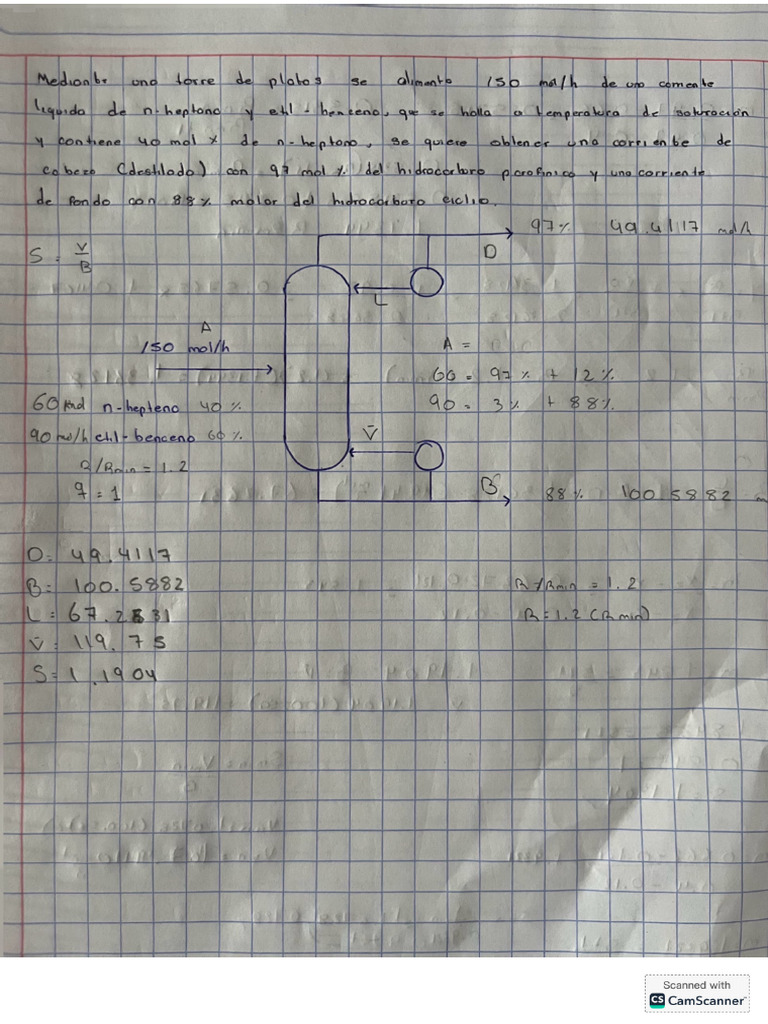 Mediante una torre de platos se alimenta 150 mol/h de una corriente
liquida de n-heptano y etil-benceno, que se halla a temperatura de saturación
y contiene 40 mol % de n-heptano, se quiere obtener una corriente de
cabeza (destilado) con 97 mol % del hidrocarburo parafinico y una corriente
de fondo con 88% molar del hidrocarburo ciclio.
97% 49.4117 mol/h
S = V/B
D
L
A
150 mol/h
A =
60 = 97% + 12%
60 mol n-hepteno 40%
90 = 3% + 88%
90 mol/h etil-benceno 60%
V̄
R/Rmin = 1.2
q = 1
B 88% 100.5882
D = 49.4117
B = 100.5882
R/Rmin = 1.2
L = 67.2831
R = 1.2 (Rmin)
V̄ = 119.75
S = 1.1904
Scanned with
CS CamScanner